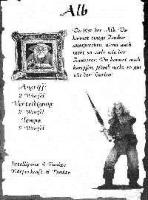 Alb
Du bist der Alb. Du
kannst einige Zauber
aussprechen, wenn auch
nicht so viele wie der
Zauberer. Du kannst auch
kämpfen, jedoch nicht so gut
wie der Barbar
Angriff:
2 Würfel
Verteidigung:
2 Würfel
Tempo:
2 Würfel
Intelligenz 4 Punkte
Körperkraft 6 Punkte